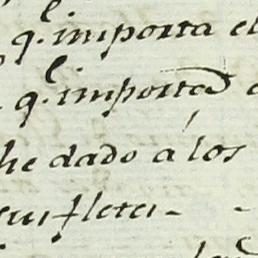 q.^l importa el
q.^l importa
he dado a los
fletes